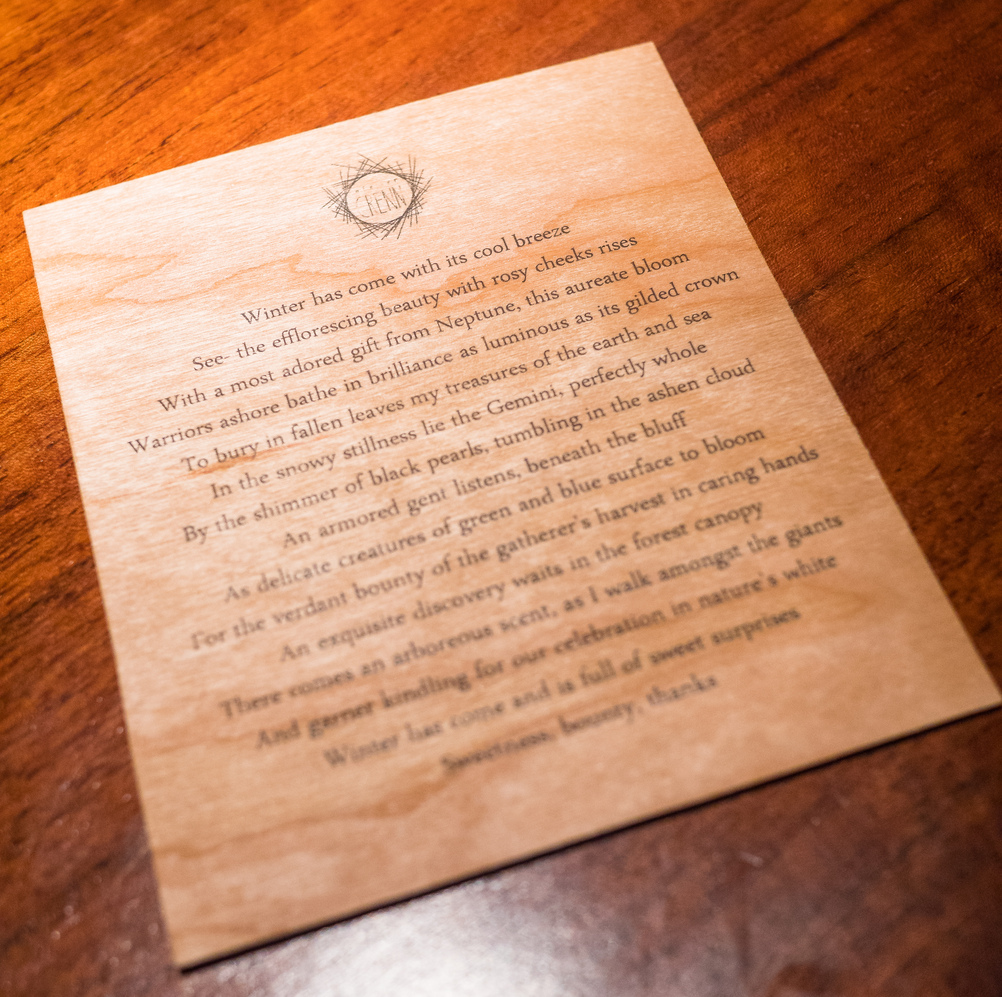 CRENN
Winter has come with its cool breeze
See- the efflorescing beauty with rosy cheeks rises
With a most adored gift from Neptune, this aureate bloom
Warriors ashore bathe in brilliance as luminous as its gilded crown
To bury in fallen leaves my treasures of the earth and sea
In the snowy stillness lie the Gemini, perfectly whole
By the shimmer of black pearls, tumbling in the ashen cloud
An armored gent listens, beneath the bluff
As delicate creatures of green and blue surface to bloom
For the verdant bounty of the gatherer's harvest in caring hands
An exquisite discovery waits in the forest canopy
There comes an arboreous scent, as I walk amongst the giants
And garner kindling for our celebration in nature's white
Winter has come and is full of sweet surprises
Sweetness, bounty, thanks